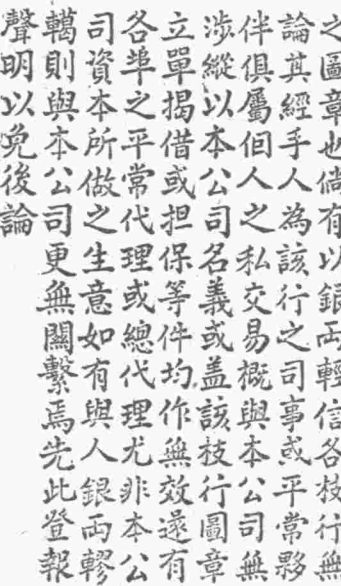 之圖章也倘有以銀両輕信各枝行無
論其經手人為該行之司事或平常夥
伴俱屬佪人之私交易概與本公司無
涉縱以本公司名義或盖該枝行圖章
立單揭借或担保等件均作無效還有
各埠之平常代理或總代理尤非本公
司資本所做之生意如有與人銀両轇
轕則與本公司更無關繫焉先此登報
聲明以免後論